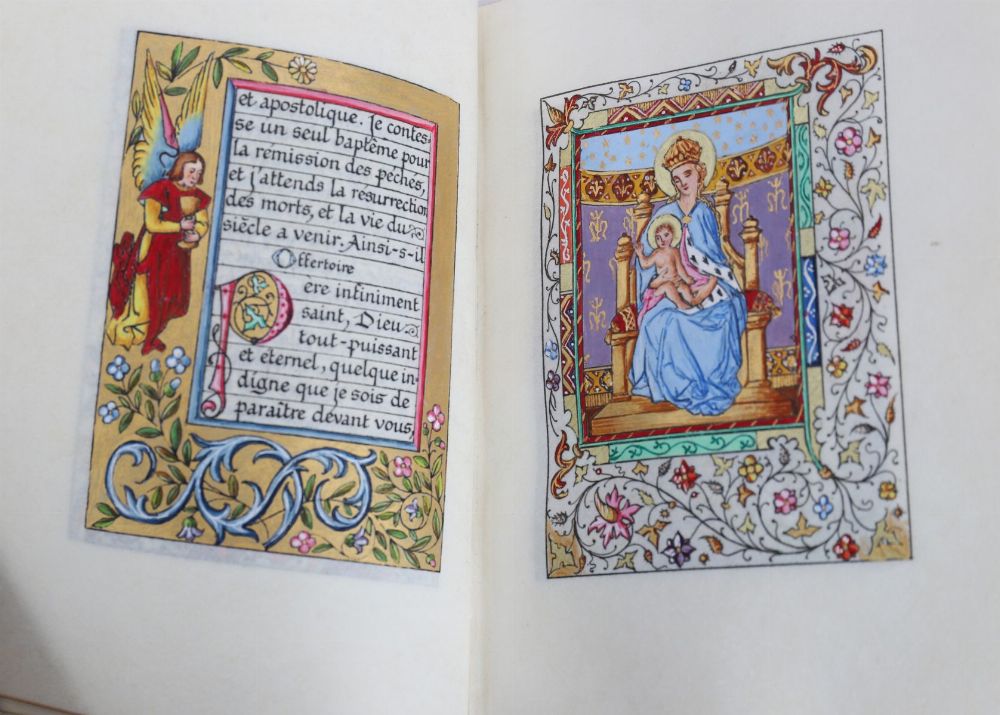 et apostolique. Je confes-
se un seul baptême pour
la rémission des péchés,
et j'attends la résurrection
des morts, et la vie du
siècle a venir. Ainsi-s-il
Offertoire
Père infiniment
saint, Dieu
tout-puissant
et éternel, quelque in-
digne que je sois de
paraître devant vous,